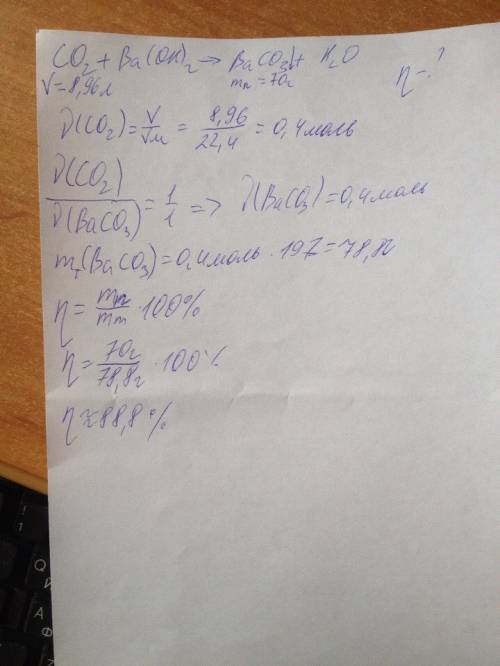 CO₂ + Ba(OH)₂ → BaCO₃↓ + H₂O
V = 8,96 л mп = 70г η - ?
ν(CO₂) = V/Vм = 8,96/22,4 = 0,4 моль
ν(CO₂)/ν(BaCO₃) = 1/1 => ν(BaCO₃) = 0,4 моль
mт(BaCO₃) = 0,4 моль · 197 = 78,8г
η = mп/mт · 100%
η = 70г/78,8г · 100%
η ≈ 88,8%